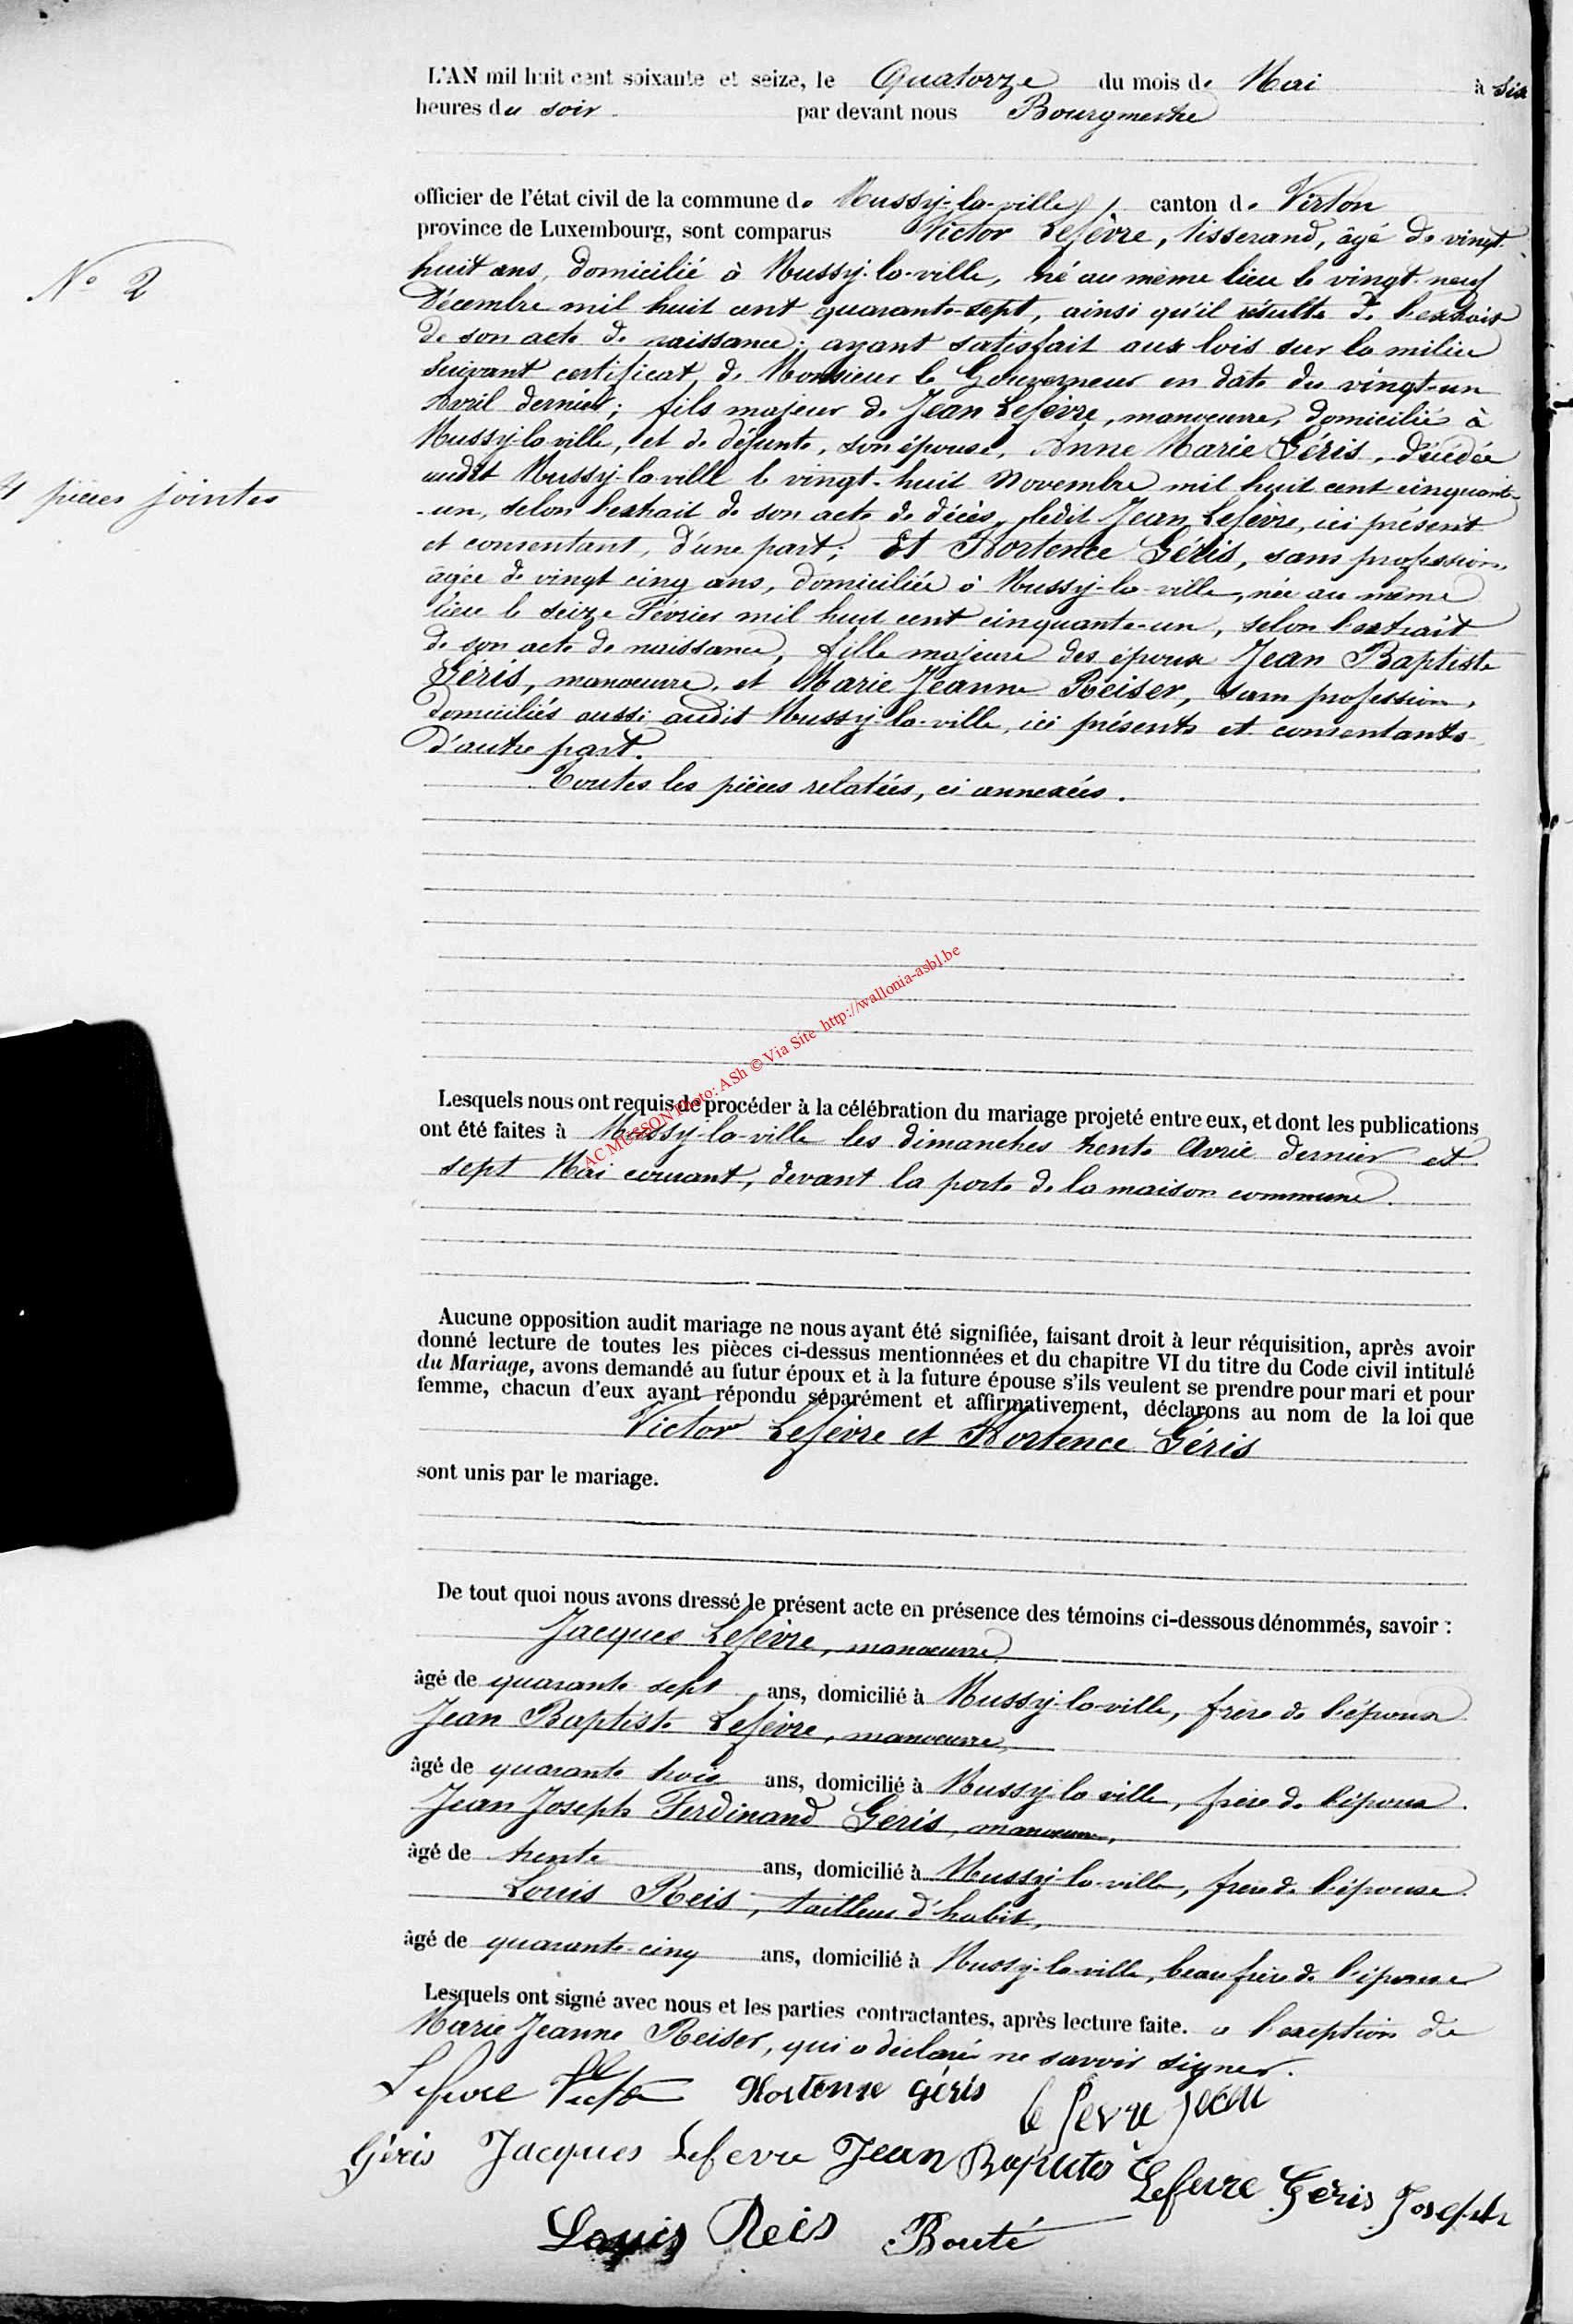 L'AN mil huit cent soixante et seize, le Quatorze du mois de Mai à six
heures du soir par devant nous Bourgmestre
officier de l'état civil de la commune de Mussy-la-ville, canton de Virton
province de Luxembourg, sont comparus Victor Lefèvre, tisserand, âgé de vingt-
N° 2
huit ans, domicilié à Mussy-la-ville, né au même lieu le vingt-neuf
Décembre mil huit cent quarante-sept, ainsi qu'il résulte de l'extrait
de son acte de naissance; ayant satisfait aux lois sur la milice
suivant certificat de Monsieur le Gouverneur en date du vingt-un
Avril dernier; fils majeur de Jean Lefèvre, manoeuvre, domicilié à
Mussy-la-ville, et de défunte, son épouse, Anne Marie Géris, décédée
audit Mussy-la-ville le vingt-huit Novembre mil huit cent cinquante-
4 pièces jointes
-un, selon l'extrait de son acte de décès, ledit Jean Lefèvre, ici présent
et consentant, d'une part; Et Hortence Géris, sans profession,
âgée de vingt cinq ans, domiciliée à Mussy-la-ville, née au même
lieu le seize Février mil huit cent cinquante-un, selon l'extrait
de son acte de naissance, fille majeure des époux Jean Baptiste
Géris, manoeuvre, et Marie Jeanne Reiser, sans profession,
domiciliés aussi audit Mussy-la-ville, ici présents et consentants
d'autre part.
Toutes les pièces relatées, ci annexées.
AC MUSSON Photo: ASh © Via Site http://wallonia-asbl.be
Lesquels nous ont requis de procéder à la célébration du mariage projeté entre eux, et dont les publications
ont été faites à Mussy-la-ville les dimanches trente Avril dernier et
sept Mai courant, devant la porte de la maison commune
Aucune opposition audit mariage ne nous ayant été signifiée, faisant droit à leur réquisition, après avoir
donné lecture de toutes les pièces ci-dessus mentionnées et du chapitre VI du titre du Code civil intitulé
du Mariage, avons demandé au futur époux et à la future épouse s'ils veulent se prendre pour mari et pour
femme, chacun d'eux ayant répondu séparément et affirmativement, déclarons au nom de la loi que
Victor Lefèvre et Hortence Géris
sont unis par le mariage.
De tout quoi nous avons dressé le présent acte en présence des témoins ci-dessous dénommés, savoir :
Jacques Lefèvre, manoeuvre
âgé de quarante sept ans, domicilié à Mussy-la-ville, frère de l'époux
Jean Baptiste Lefèvre, manoeuvre,
âgé de quarante trois ans, domicilié à Mussy-la-ville, frère de l'époux.
Jean Joseph Ferdinand Géris, manoeuvre,
âgé de trente ans, domicilié à Mussy-la-ville, frère de l'épouse.
Louis Reis, tailleur d'habit,
âgé de quarante-cinq ans, domicilié à Mussy-la-ville, beau frère de l'épouse
Lesquels ont signé avec nous et les parties contractantes, après lecture faite. à l'exception de
Marie Jeanne Reiser, qui a déclaré ne savoir signer.
Lefevre Victor Hortense Géris le fevre jean
Géris Jacques Lefevre Jean Baptiste Lefevre Géris Joseph
Louis Reis Bouté